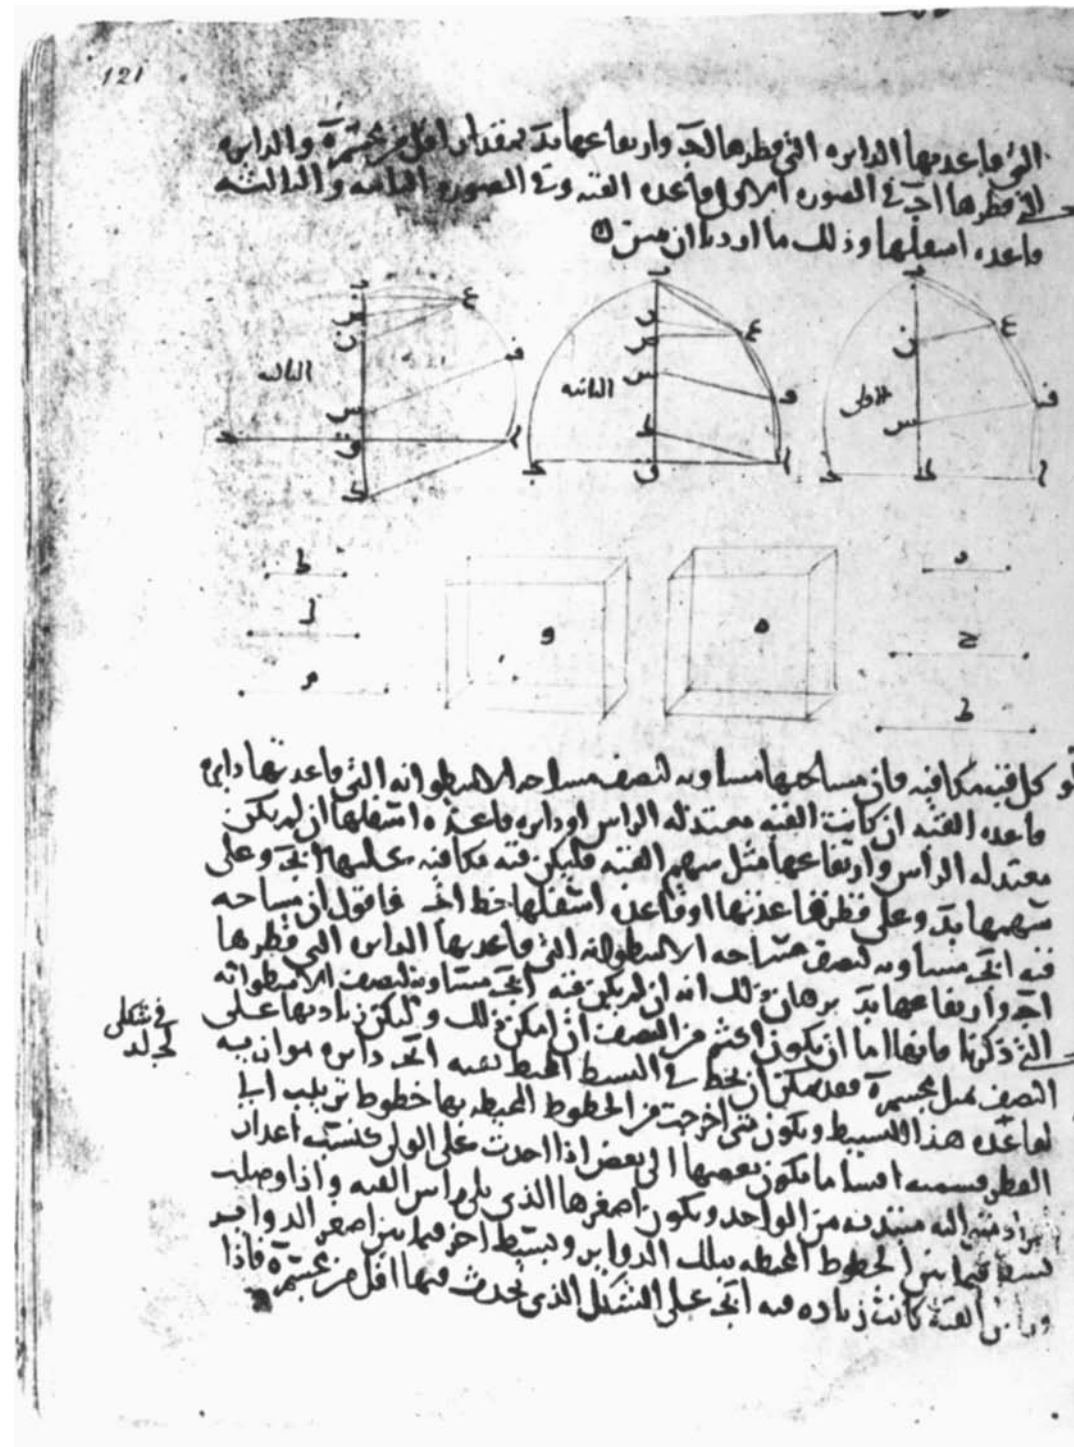 121
التى قاعدتها الدايره التى قطرها اجـ وارتفاعها بد بمقدار اقل من مجسم ه والدايره
التى قطرها اجـ فى الصوره الاولى قاعده القبه وفى الصوره الثانيه والثالثه
قاعده اسفلها وذلك ما اردنا ان نبين
ب
ب
ب
ع
ع
ع
ف
ف
س
س
س
الثالثه
الثانيه
الاولى
ق
ا
ا
ا
ط
د
ل
ح
م
ط
و
ه
لو كل قبه مكافيه فان مساحتها مساويه لنصف مساحه الاسطوانه التى قاعدتها دايره
قاعده القبه ان كانت القبه معتدله الراس او دايره قاعده اسفلها ان لم يكن
معتدله الراس وارتفاعها مثل سهم القبه فليكن قبه مكافيه عليها ابجـ وعلى
سهمها بد وعلى قطر قاعدتها او قاعده اسفلها خط اجـ فاقول ان مساحه
قبه ابجـ مساويه لنصف مساحه الاسطوانه التى قاعدتها الدايره التى قطرها
اجـ وارتفاعها بد برهان ذلك انه ان لم يكن قبه ابجـ مساويه لنصف الاسطوانه
التى ذكرنا فانها اما ان يكون اعظم من النصف ان امكن ذلك وليكن زيادتها على
فى شكلى
لجـ لد
النصف مثل مجسم ه فقد يمكن ان نخط فى البسيط المحيط بقبه ابجـ دواير موازيه
لقاعده هذا البسيط ويكون متى اخرجت من الخطوط المحيطه بها خطوط الى
القطر قسمته اقساما يكون بعضها الى بعض اذا اخذت على الولى كنسب اعداد
افراد متواليه مبتديه من الواحد ويكون اصغرها الذى يلى راس القبه واذا وصلت
بسيط فيما بين الخطوط المحيطه بتلك الدواير وبسيط اخر فيما بين اصغر الدواير
وراس القبه كانت زياده قبه ابجـ على الشكل الذى يحدث فيها اقل من مجسم ه فاذا